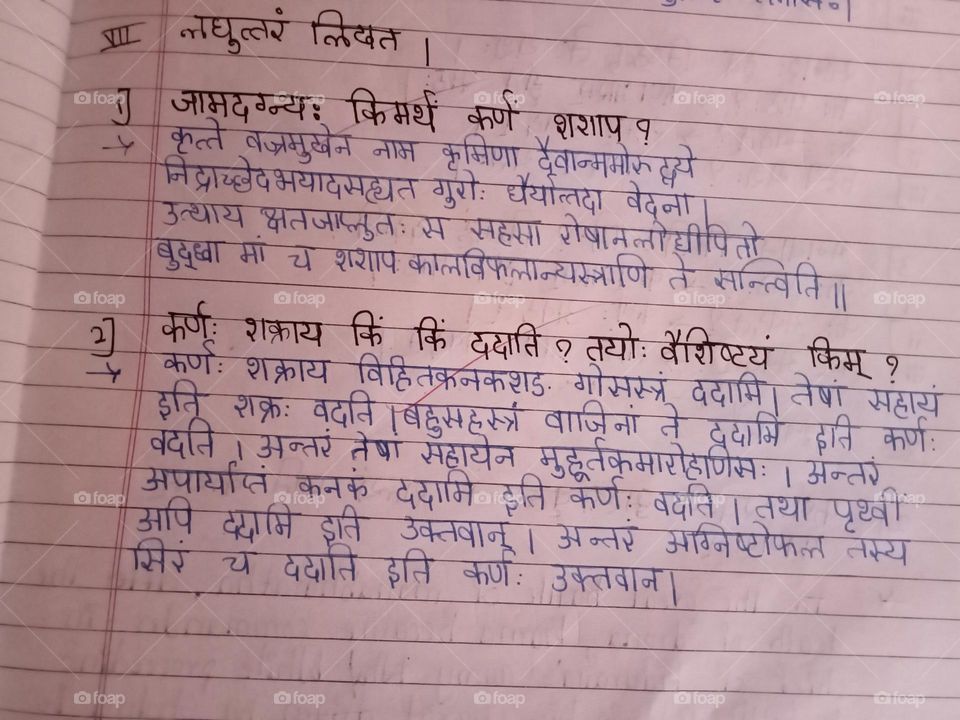 VII लघुत्तरं लिखत |
1] जामदग्न्यः किमर्थं कर्णं शशाप ?
→ कृत्ते वज्रमुखेन नाम कृमिणा दैवान्ममोरु द्वये
निद्राच्छेदभयादसह्यत गुरोः धैर्यात्तदा वेदना |
उत्थाय क्षतजाप्लुतः स सहसा रोषानलोद्यीपितो
बुद्ध्वा मां च शशाप कालविफलान्यस्त्राणि ते सन्त्विति ||
2] कर्णः शक्राय किं किं ददाति ? तयोः वैशिष्टयं किम् ?
→ कर्णः शक्राय विहितकनकशड. गोसस्त्रं ददामि | तेषां सहायं
इति शक्रः वदति | बहुसहस्त्रं वाजिनां ते ददामि इति कर्णः
वदति | अन्तरं तेषा सहायेन मुहूर्तकमारोहणिमः | अन्तरं
अपार्याप्तं कनकं ददामि इति कर्णः वदति | तथा पृथ्वी
अपि ददामि इति उक्तवान् | अन्तरं अग्निष्टोफल तस्य
सिरं च ददाति इति कर्णः उक्तवान |
foap